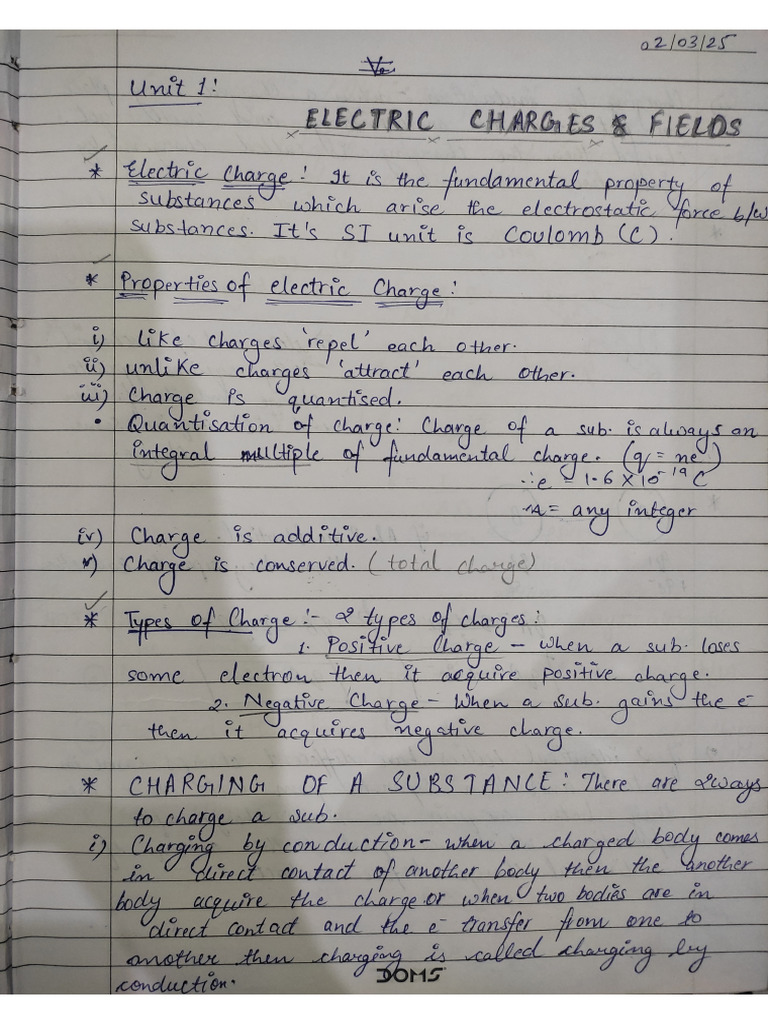 02/03/25
Unit 1:
ELECTRIC CHARGES & FIELDS
* Electric Charge: It is the fundamental property of
substances which arise the electrostatic force b/w
substances. It's SI unit is Coulomb (C).
* Properties of electric Charge:
i) like charges 'repel' each other.
ii) unlike charges 'attract' each other.
iii) Charge is quantised.
• Quantisation of charge: Charge of a sub. is always an
integral multiple of fundamental charge. (q = ne)
∴ e = 1.6 × 10⁻¹⁹ C
n = any integer
iv) Charge is additive.
v) Charge is conserved. (total charge)
* Types of Charge :- 2 types of charges:
1. Positive Charge - when a sub. loses
some electron then it acquire positive charge.
2. Negative Charge - When a sub. gains the e⁻
then it acquires negative charge.
* CHARGING OF A SUBSTANCE: There are 2 ways
to charge a sub.
i) Charging by conduction - when a charged body comes
in direct contact of another body then the another
body acquire the charge or when two bodies are in
direct contact and the e⁻ transfer from one to
another then charging is called charging by
conduction.
DOMS